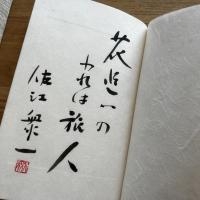 花近への
われは旅人
佐江衆一